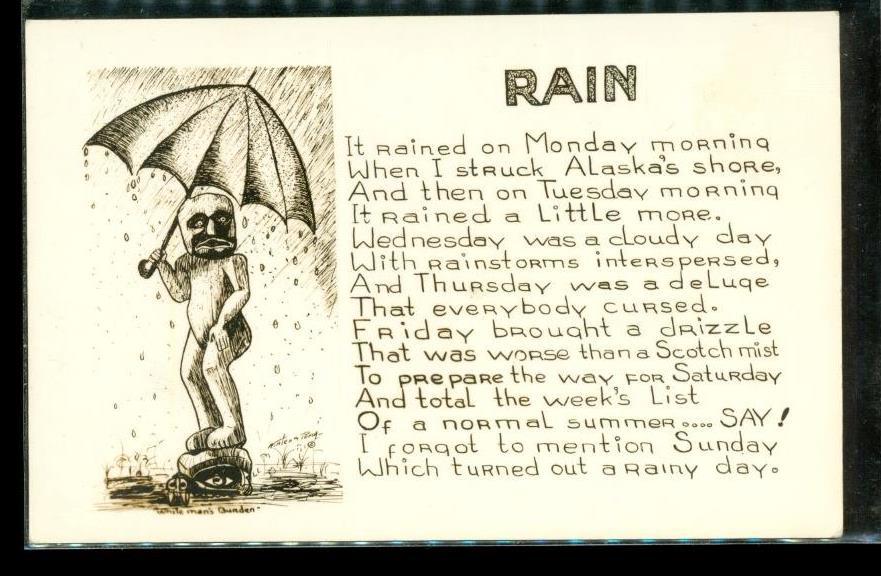 RAIN
It rained on Monday morning
When I struck Alaska's shore,
And then on Tuesday morning
It rained a little more.
Wednesday was a cloudy day
With rainstorms interspersed,
And Thursday was a deluge
That everybody cursed.
Friday brought a drizzle
That was worse than a Scotch mist
To prepare the way for Saturday
And total the week's list
Of a normal summer.... SAY!
I forgot to mention Sunday
Which turned out a rainy day.
©
"White man's Burden"